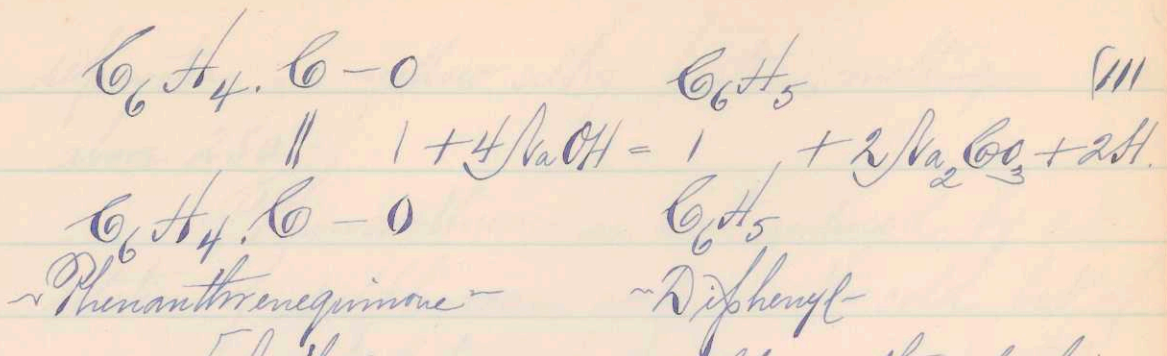 C6H4.C-O C6H5 (111
|| | +4NaOH = | + 2Na2CO3 + 2H.
C6H4.C-O C6H5
~Phenanthrenequinone- ~Diphenyl-